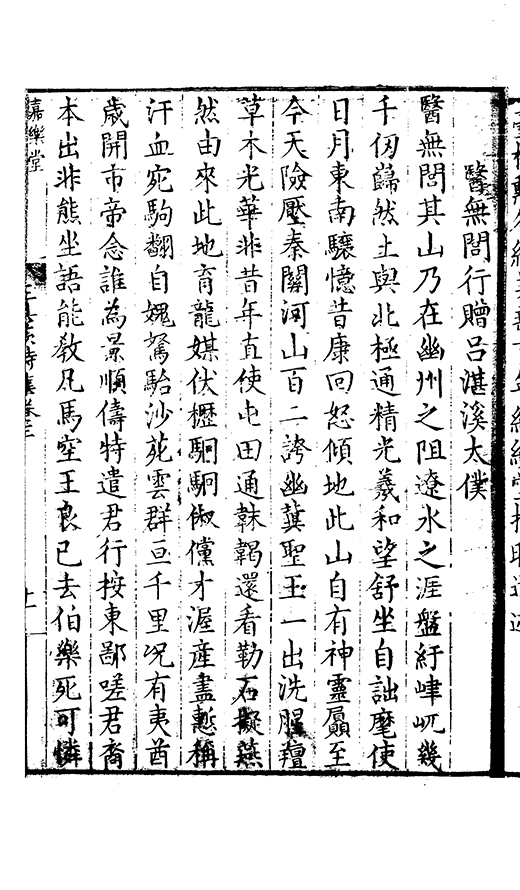 醫無閭行贈呂湛溪太僕
醫無閭其山乃在幽州之阻遼水之涯盤紆崒屼幾
千仞巋然土與北極通精光羲和望舒坐自詘麾使
日月東南驤憶昔康回怒傾地此山自有神靈贔至
今天險壓秦關河山百二誇幽冀聖王一出洗腥羶
草木光華非昔年直使屯田通韎鞨還看勒石擬燕
然由來此地育龍媒伏櫪駉駉俶儻才渥產盡慙稱
汗血宛駒翻自媿駑駘沙苑雲群亘千里況有夷酋
歲開市帝念誰為景順儔特遣君行按東鄙嗟君裔
本出非熊坐語能教凡馬空王良已去伯樂死可憐
嘉樂堂